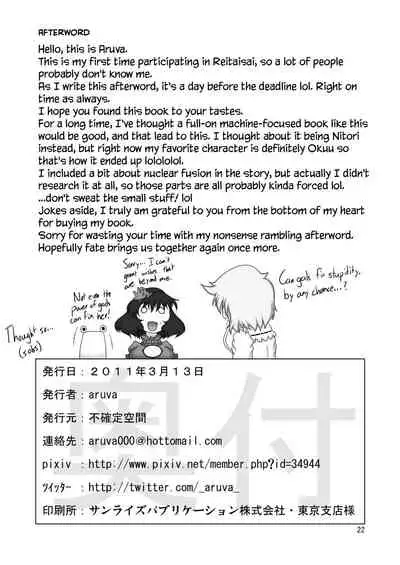 AFTERWORD
Hello, this is Aruva.
This is my first time participating in Reitaisai, so a lot of people
probably don't know me.
As I write this afterword, it's a day before the deadline lol. Right on
time as always.
I hope you found this book to your tastes.
For a long time, I've thought a full-on machine-focused book like this
would be good, and that lead to this. I thought about it being Nitori
instead, but right now my favorite character is definitely Okuu so
that's how it ended up lolololol.
I included a bit about nuclear fusion in the story, but actually I didn't
research it at all, so those parts are all probably kinda forced lol.
...don't sweat the small stuff! lol
Jokes aside, I truly am grateful to you from the bottom of my heart
for buying my book.
Sorry for wasting your time with my nonsense rambling afterword.
Hopefully fate brings us together again once more.
Sorry... I can't
grant wishes that
are beyond me.
Can gods fix stupidity,
by any chance...?
Not even the
power of gods
can fix her!
Thought so...
(sobs)
奥付
発行日：２０１１年３月１３日
発行者：aruva
発行元：不確定空間
連絡先：aruva000@hottomail.com
pixiv ：http://www.pixiv.net/member.php?id=34944
ﾂｲｯﾀｰ ：http://twitter.com/_aruva_
印刷所：サンライズパブリケーション株式会社・東京支店様
22